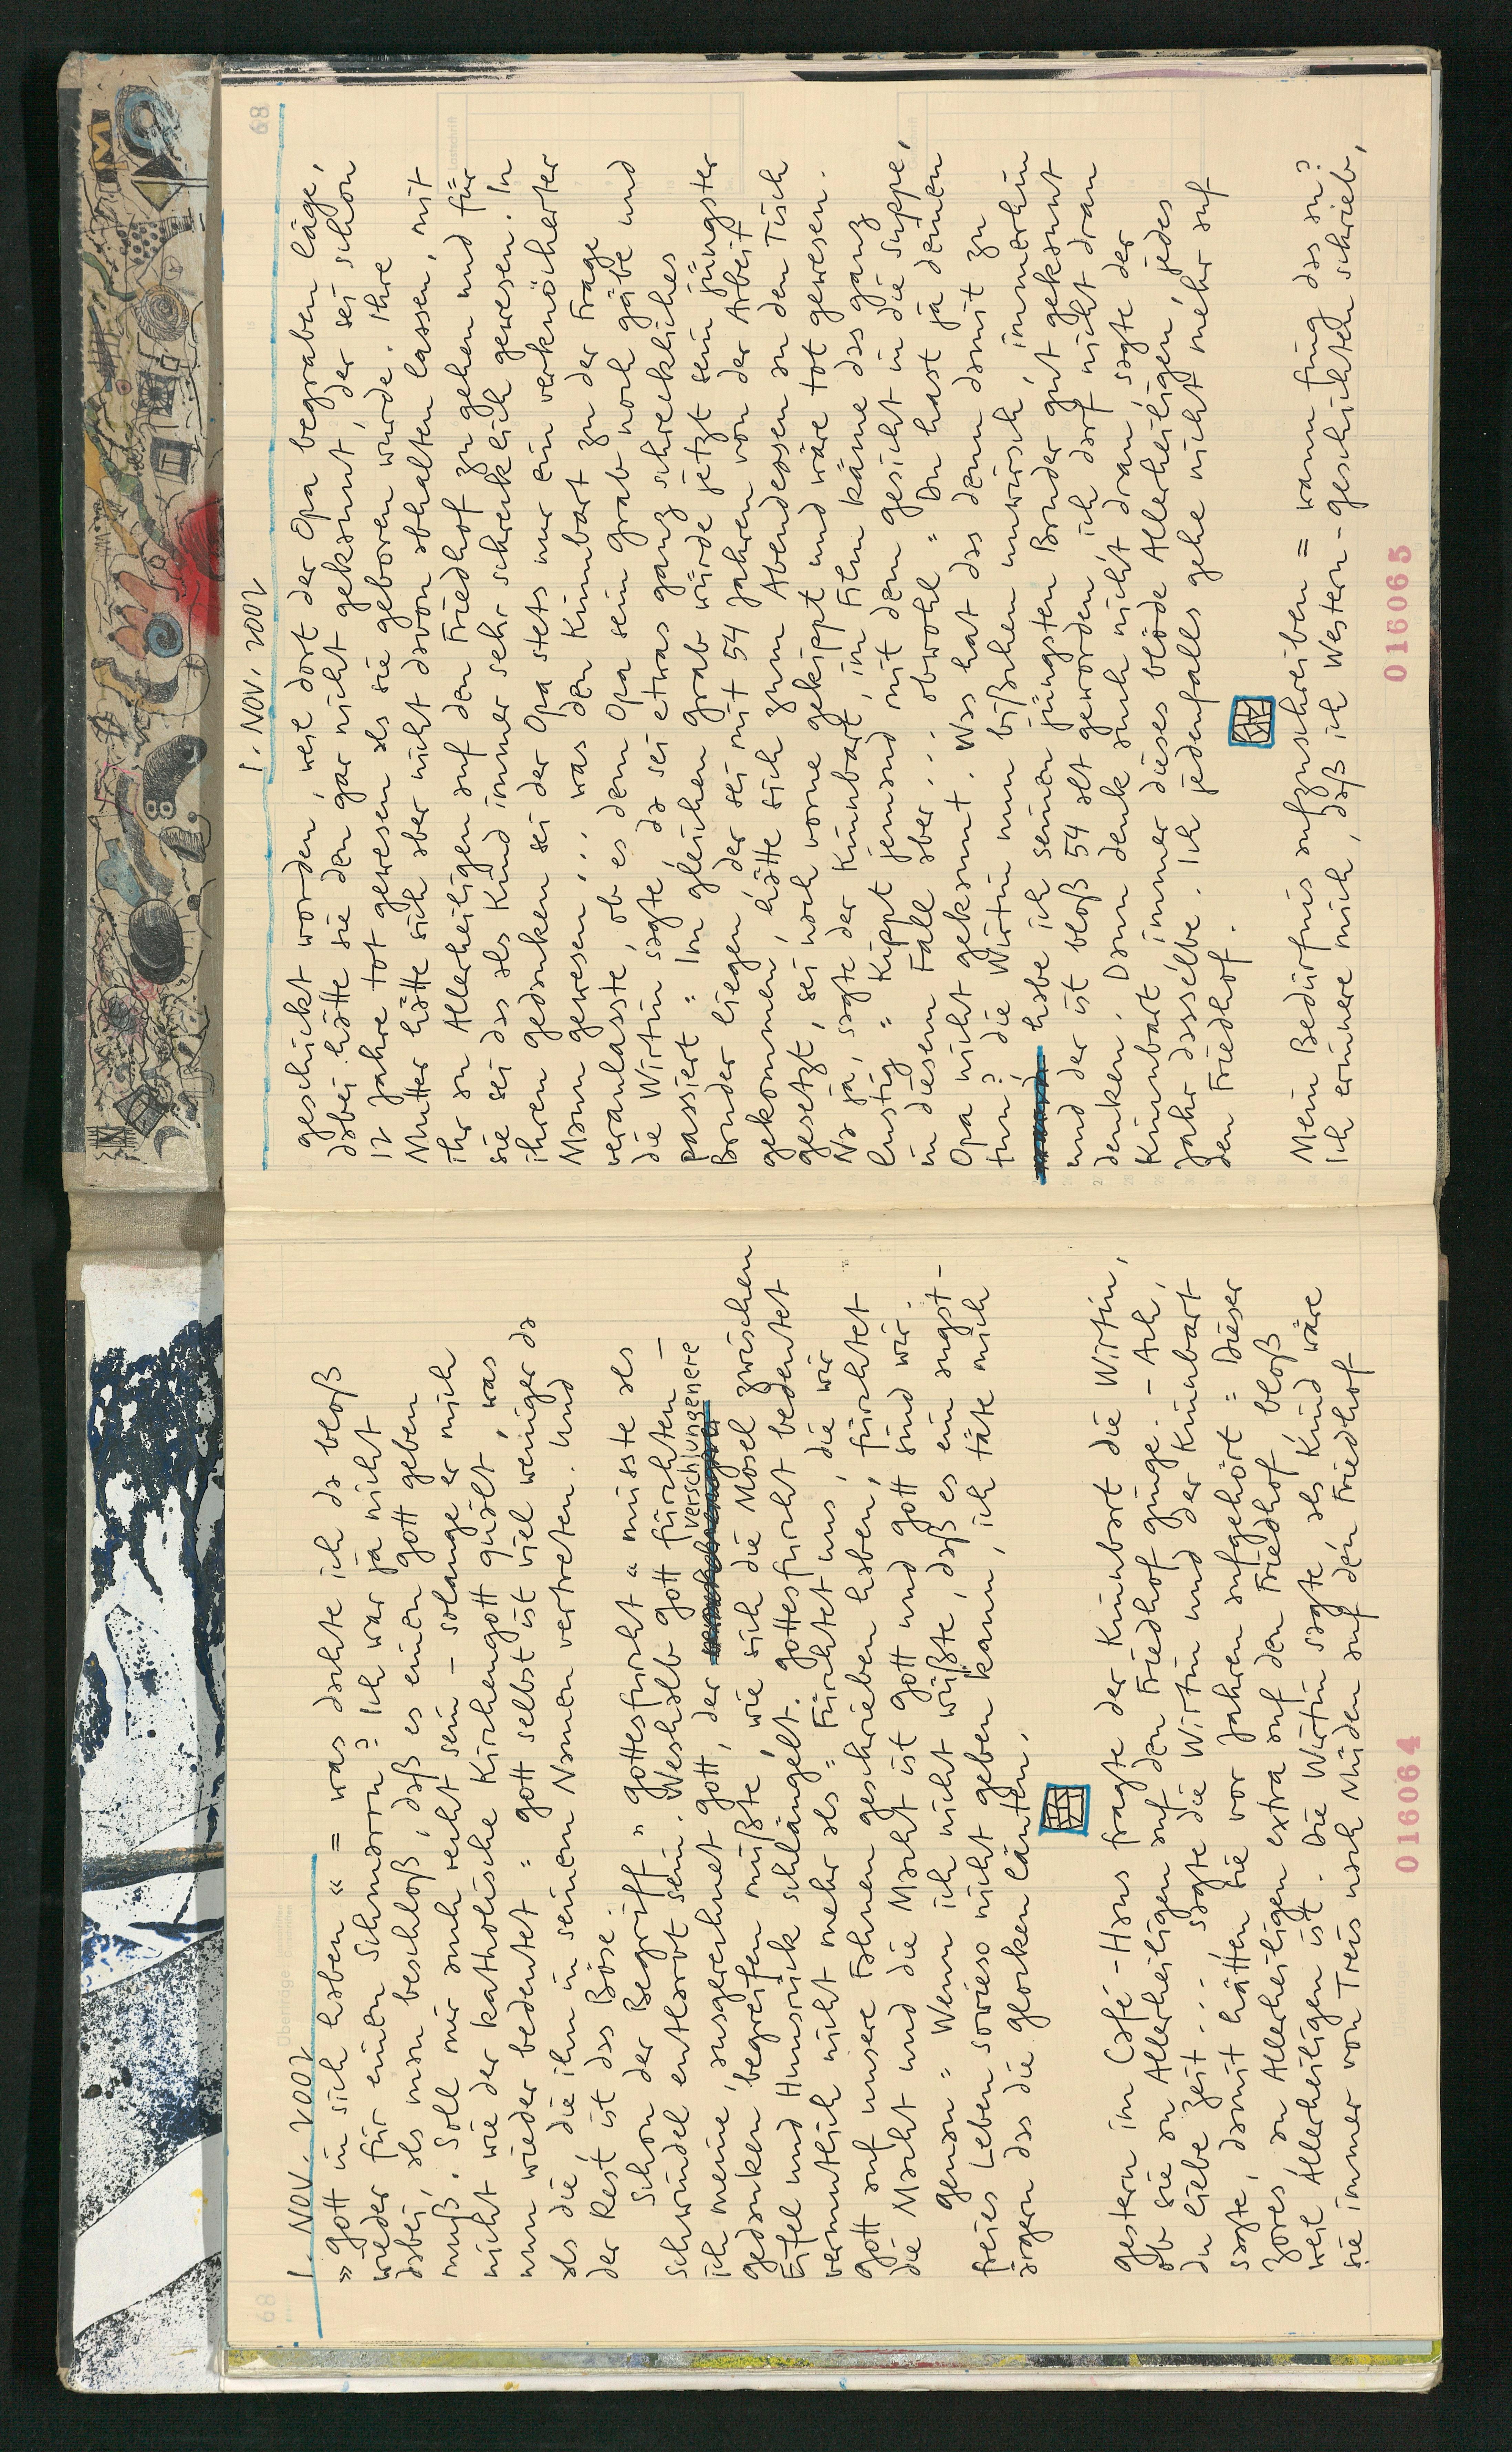 1. NOV. 2002
„Gott in sich haben" = was dachte ich da bloß
wieder für einen Schmarrn? Ich war ja nicht
dabei, als man beschloß, daß es einen Gott geben
muß. Soll mir auch recht sein – solange er mich
nicht wie der katholische Kirchengott quält, was
nun wieder bedeutet = Gott selbst ist viel weniger da
als die die ihn in seinem Namen vertreten. Und
der Rest ist das Böse.
Schon der Begriff „Gottesfurcht" müsste als
Schwindel entlarvt sein. Weshalb Gott fürchten –
ich meine, ausgerechnet Gott, der verschlungenere
Gedanken begreifen müßte, wie sich die Mosel zwischen
Eifel und Hunsrück schlängelt. Gottesfurcht bedeutet
vermutlich nicht mehr als = Fürchtet uns, die wir
Gott auf unsere Fahnen geschrieben haben, fürchtet
die Macht und die Macht ist Gott und Gott sind wir.
Genau = Wenn ich nicht wüßte, daß es ein angst-
freies Leben sowieso nicht geben kann, ich täte mich
ärgern das die Glocken läuten.
Gestern im Café-Haus fragte der Kinnbart die Wirtin,
ob sie an Allerheiligen auf den Friedhof ginge. – Ach,
du liebe Zeit ... sagte die Wirtin und der Kinnbart
sagte, damit hätten sie vor Jahren aufgehört = Dieser
Zores, an Allerheiligen extra auf den Friedhof, bloß
weil Allerheiligen ist. Die Wirtin sagte, als Kind wäre
sie immer von Treis nach Müden auf den Friedhof
016064
1. NOV. 2002
68
geschickt worden, weil dort der Opa begraben läge,
dabei hätte sie den gar nicht gekannt, der sei schon
12 Jahre tot gewesen als sie geboren wurde. Ihre
Mutter hätte sich aber nicht davon abhalten lassen, mit
ihr an Allerheiligen auf den Friedhof zu gehen und für
sie sei das als Kind immer sehr schrecklich gewesen. In
ihren Gedanken sei der Opa stets nur ein verknöcherter
Mann gewesen ... was den Kinnbart zu der Frage
veranlasste, ob es dem Opa sein Grab noch gäbe und
die Wirtin sagte, da sei etwas ganz schreckliches
passiert = Im gleichen Grab würde jetzt sein jüngster
Bruder liegen, der sei mit 54 Jahren von der Arbeit
gekommen, hätte sich zum Abendessen an den Tisch
gesetzt, sei nach vorne gekippt und wäre tot gewesen.
Na ja, sagte der Kinnbart, im Film käme das ganz
lustig = Kippt jemand mit dem Gesicht in die Suppe,
in diesem Falle aber ... obwohl = Du hast ja deinen
Opa nicht gekannt. Was hat das denn damit zu
tun? die Wirtin nun bißchen unwirsch, immerhin
habe ich seinen jüngsten Bruder gut gekannt
und der ist bloß 54 alt geworden, ich darf nicht dran
denken. Dann denk auch nicht dran, sagte der
Kinnbart, immer dieses blöde Allerheiligen, jedes
Jahr dasselbe. Ich jedenfalls gehe nicht mehr auf
den Friedhof.
Mein Bedürfnis aufzuschreiben = wann fing das an?
Ich erinnere mich, daß ich Western-Geschichten schrieb,
016065